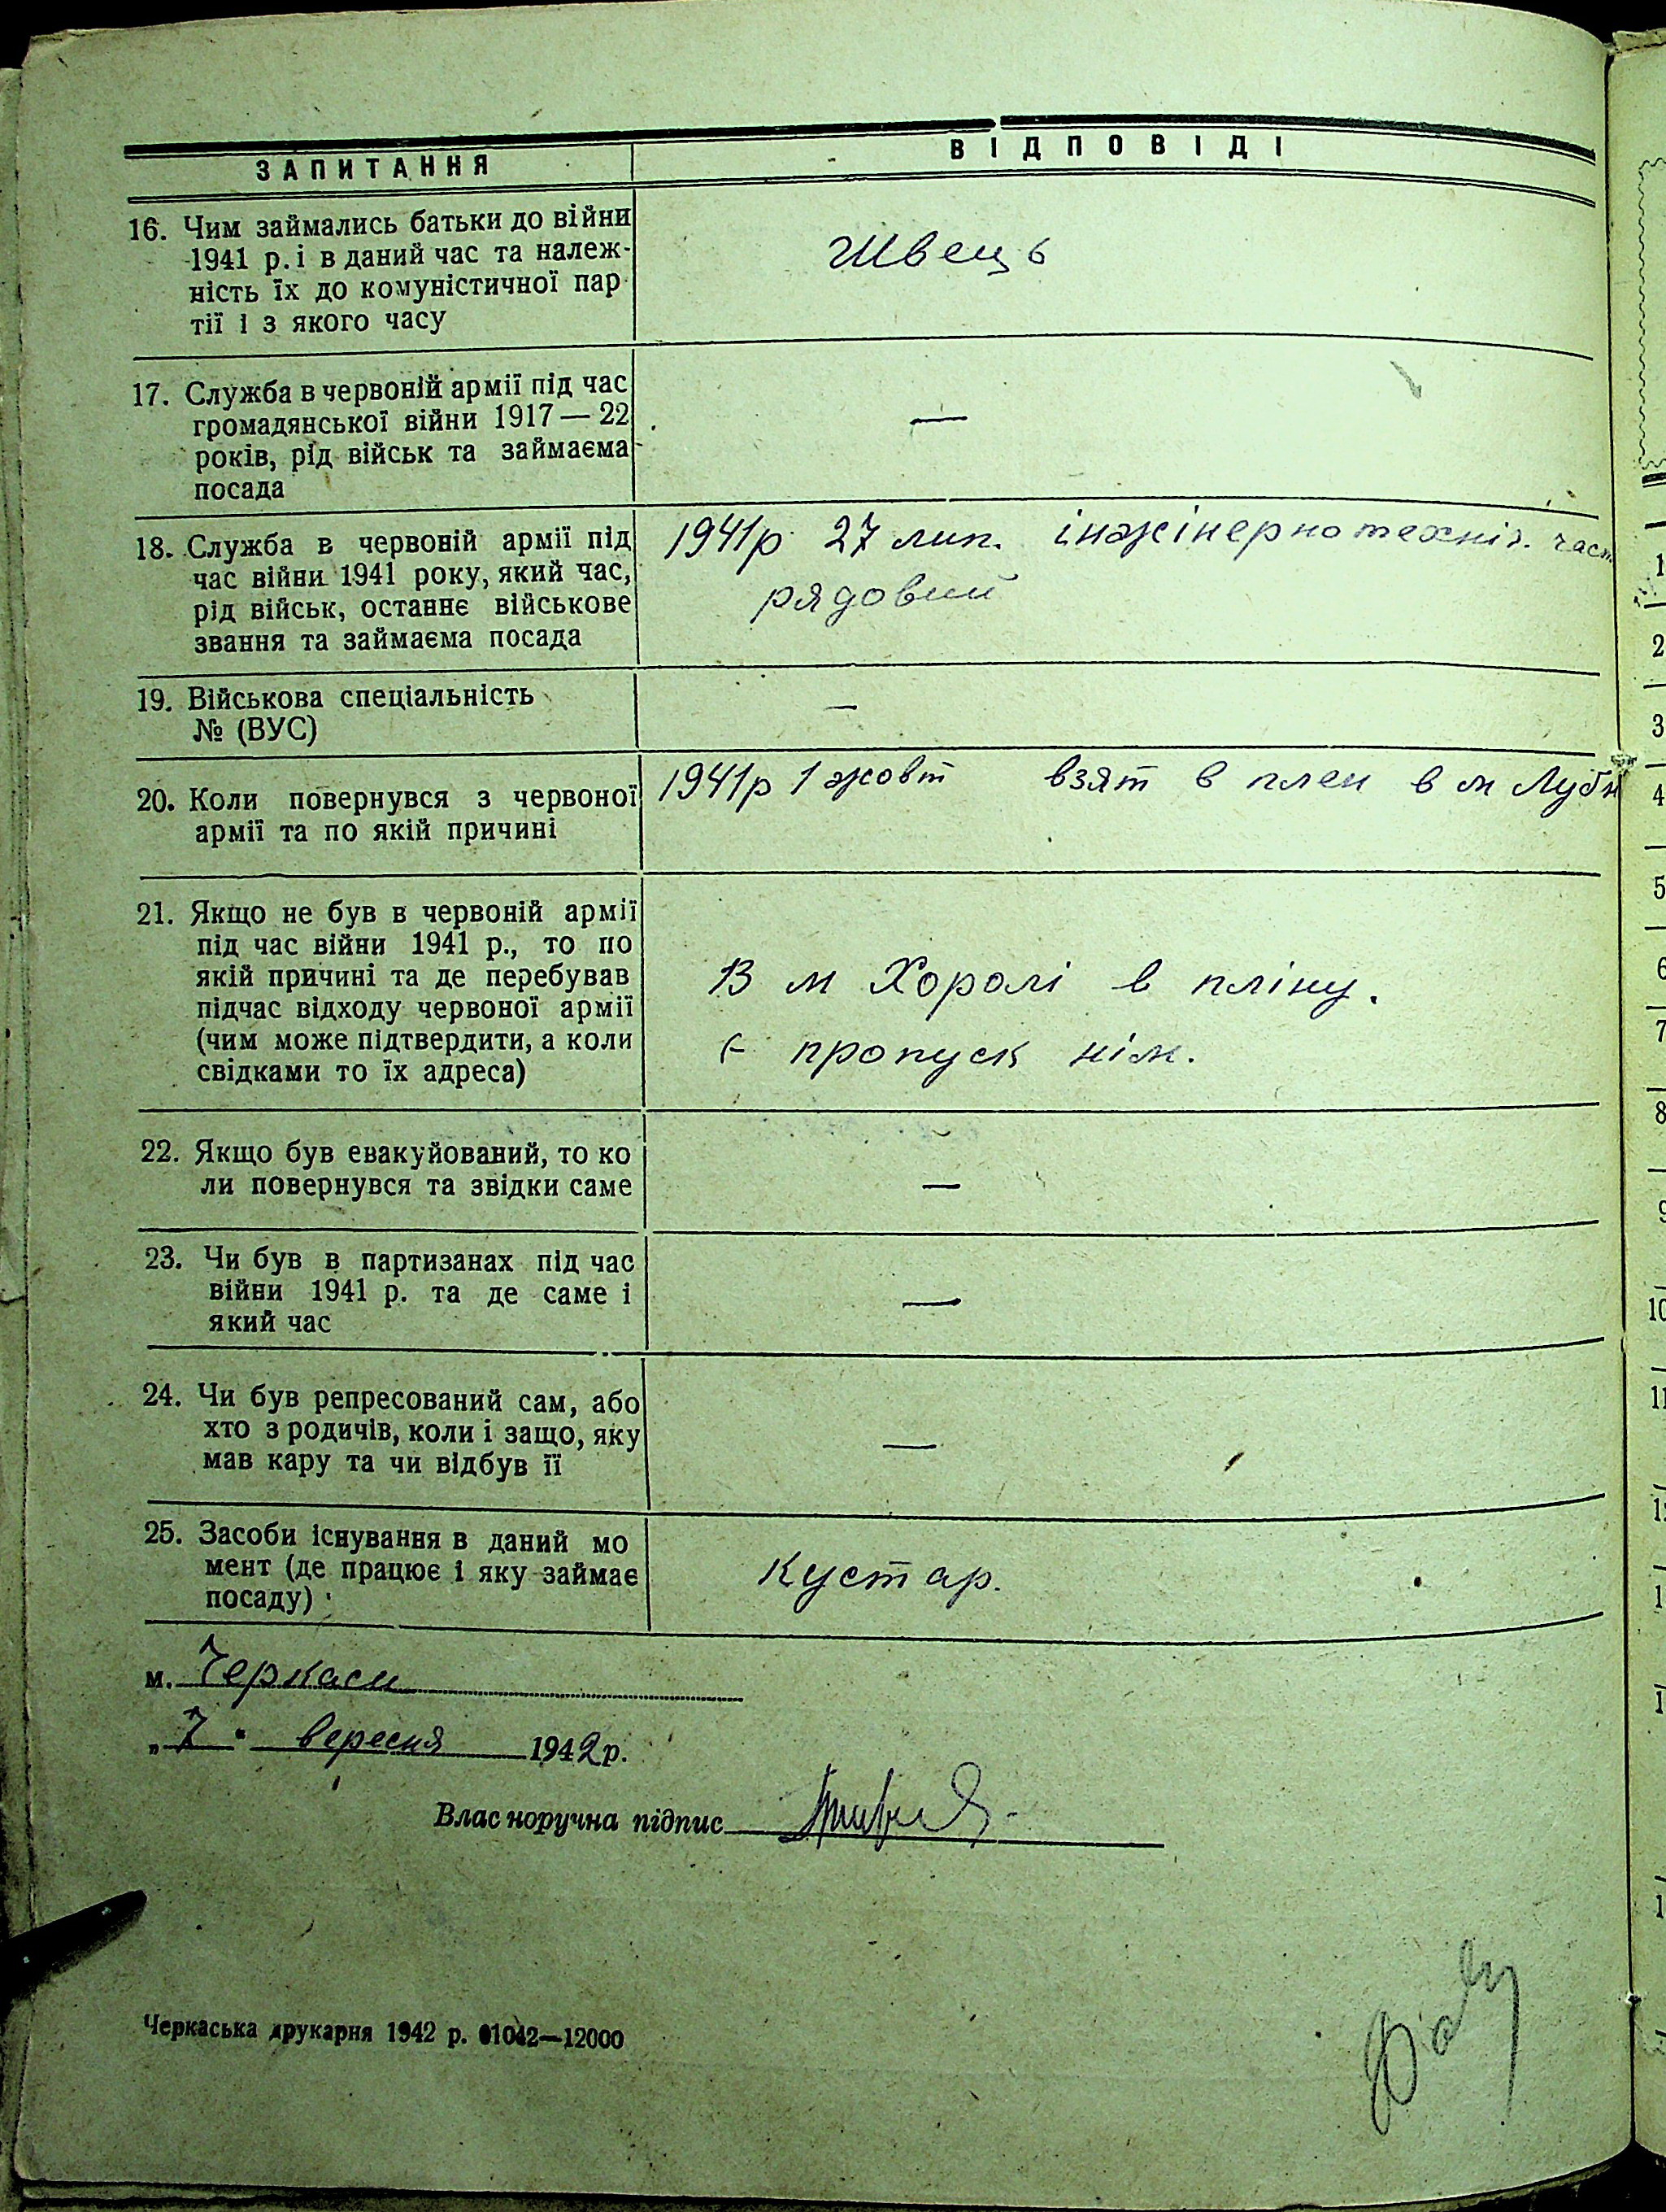 ЗАПИТАННЯ
ВІДПОВІДІ
16. Чим займались батьки до війни
1941 р. і в даний час та належ-
ність їх до комуністичної пар
тії і з якого часу
Швець
17. Служба в червоній армії під час
громадянської війни 1917 — 22
років, рід військ та займаєма
посада
—
18. Служба в червоній армії під
час війни 1941 року, який час,
рід військ, останнє військове
звання та займаєма посада
1941р 27 лип. інжінерно техніч. част
рядовий
19. Військова спеціальність
№ (ВУС)
—
20. Коли повернувся з червоної
армії та по якій причині
1941р 1 жовт взят в плен в м Лубн
21. Якщо не був в червоній армії
під час війни 1941 р., то по
якій причині та де перебував
підчас відходу червоної армії
(чим може підтвердити, а коли
свідками то їх адреса)
В м Хоролі в пліну.
є пропуск нім.
22. Якщо був евакуйований, то ко
ли повернувся та звідки саме
—
23. Чи був в партизанах під час
війни 1941 р. та де саме і
який час
—
24. Чи був репресований сам, або
хто з родичів, коли і защо, яку
мав кару та чи відбув її
—
25. Засоби існування в даний мо
мент (де працює і яку займає
посаду)
Кустар.
м. Черкаси
„7" вересня 1942р.
Власноручна підпис
Черкаська друкарня 1942 р. 01042—12000
1
2
3
4
5
6
7
8
9
10
11